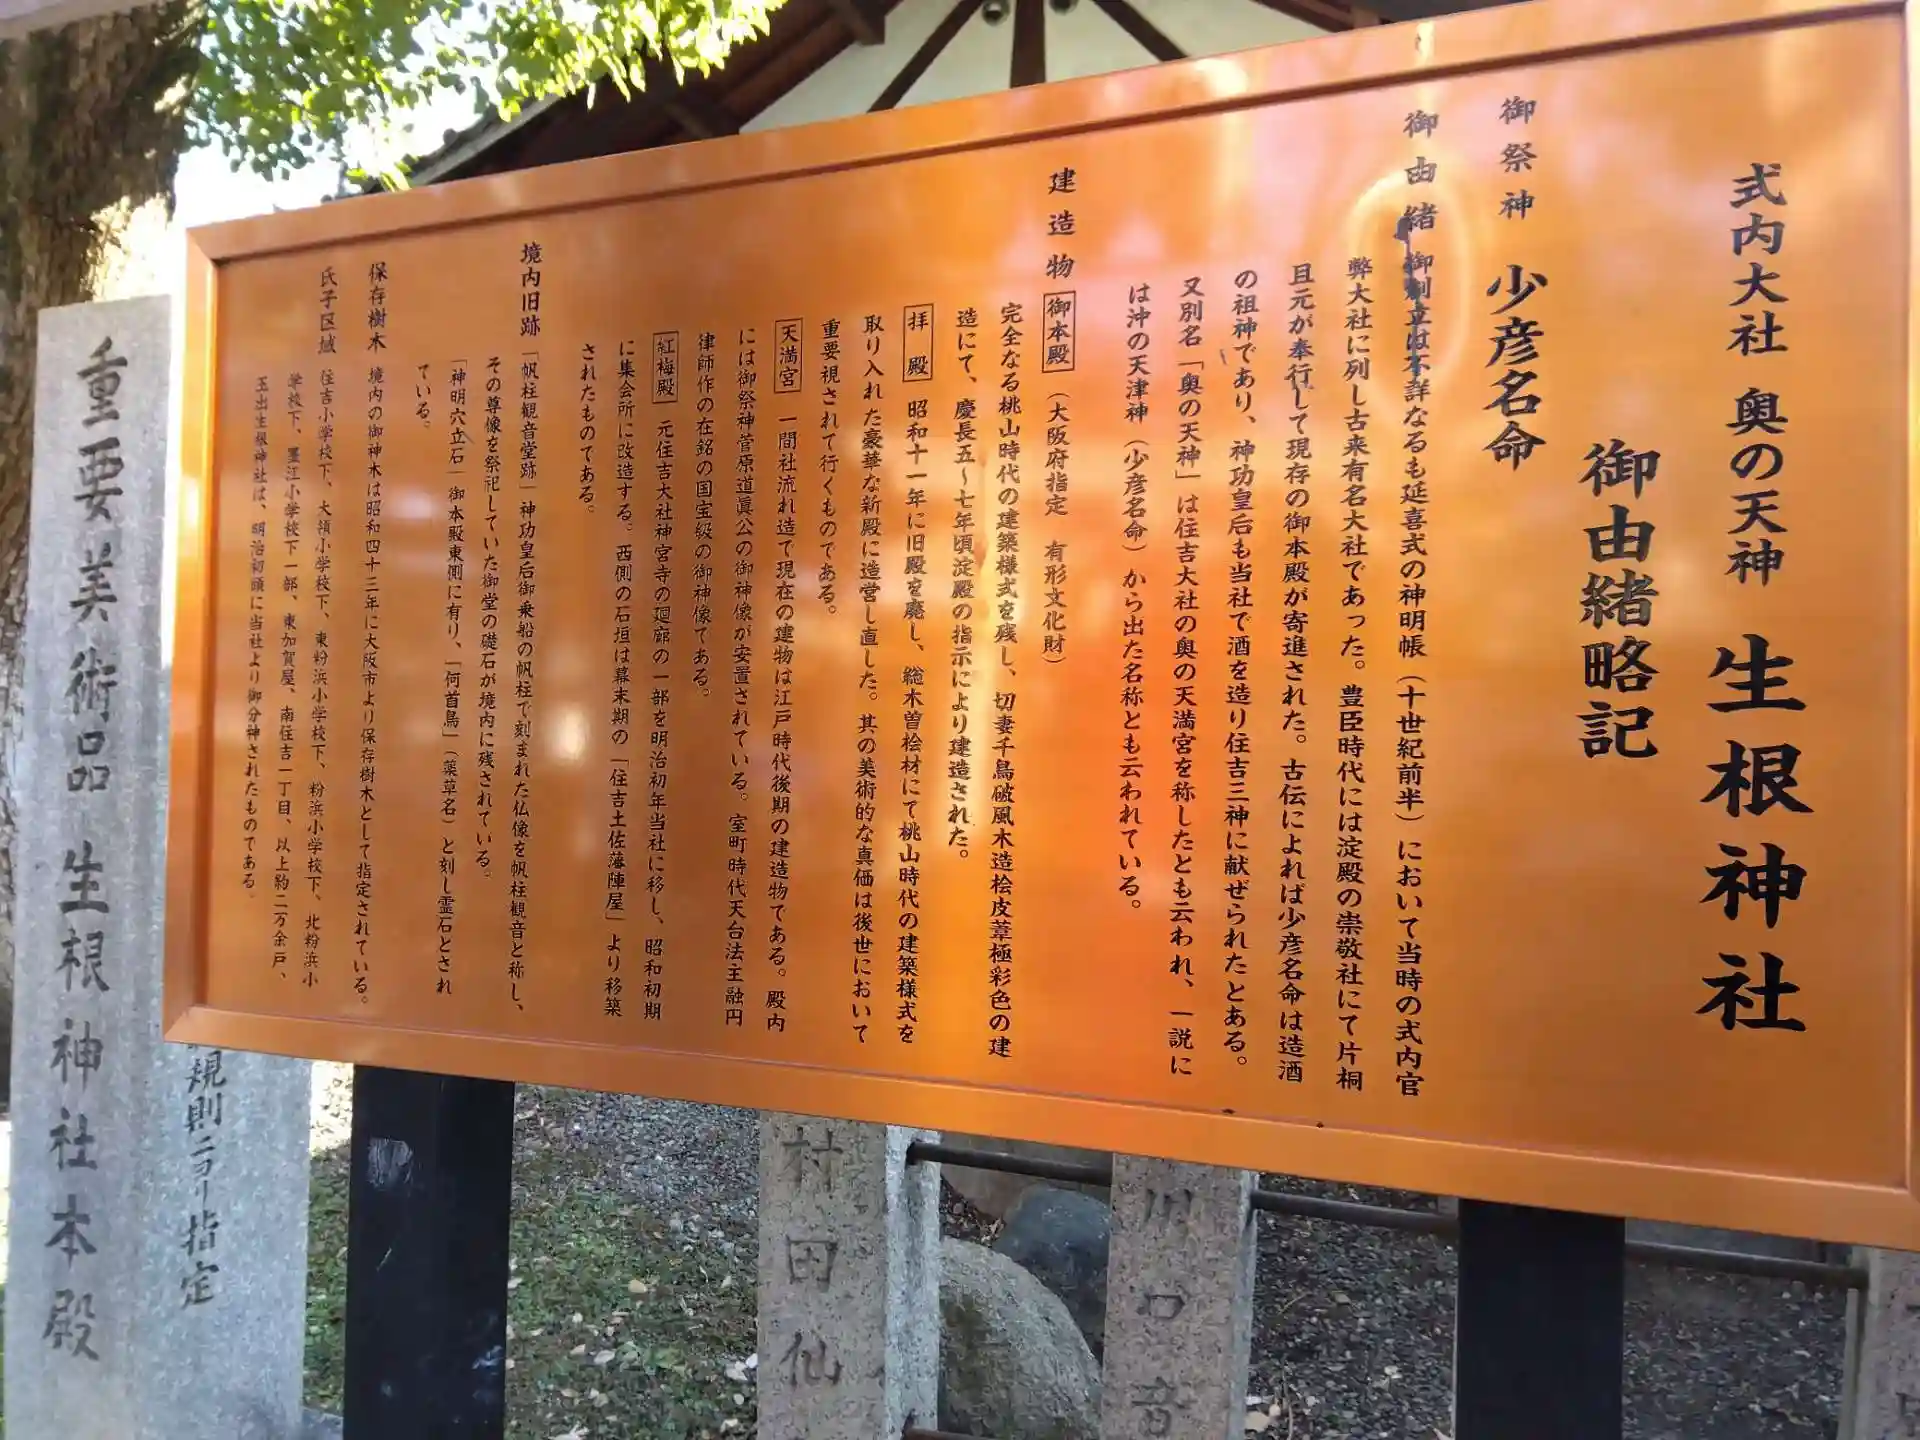 式内大社 奥の天神 生根神社
御由緒略記
御祭神 少彦名命
御由緒 御創立は不詳なるも延喜式の神明帳（十世紀前半）において当時の式内官
弊大社に列し古来有名大社であった。豊臣時代には淀殿の崇敬社にて片桐
且元が奉行して現存の御本殿が寄進された。古伝によれば少彦名命は造酒
の祖神であり、神功皇后も当社で酒を造り住吉三神に献ぜられたとある。
又別名「奥の天神」は住吉大社の奥の天満宮を称したとも云われ、一説に
は沖の天津神（少彦名命）から出た名称とも云われている。
建造物 御本殿（大阪府指定 有形文化財）
完全なる桃山時代の建築様式を残し、切妻千鳥破風木造桧皮葺極彩色の建
造にて、慶長五～七年頃淀殿の指示により建造された。
拝殿 昭和十一年に旧殿を廃し、総木曽桧材にて桃山時代の建築様式を
取り入れた豪華な新殿に造営し直した。其の美術的な真価は後世において
重要視されて行くものである。
天満宮 一間社流れ造で現在の建物は江戸時代後期の建造物である。殿内
には御祭神菅原道眞公の御神像が安置されている。室町時代天台法主融円
律師作の在銘の国宝級の御神像である。
紅梅殿 元住吉大社神宮寺の廻廊の一部を明治初年当社に移し、昭和初期
に集会所に改造する。西側の石垣は幕末期の「住吉土佐藩陣屋」より移築
されたものである。
境内旧跡 「帆柱観音堂跡」神功皇后御乗船の帆柱で刻まれた仏像を帆柱観音と称し、
その尊像を祭祀していた御堂の礎石が境内に残されている。
「神明穴立石」御本殿東側に有り、「何首烏」（薬草名）と刻し霊石とされ
ている。
保存樹木 境内の御神木は昭和四十三年に大阪市より保存樹木として指定されている。
氏子区域 住吉小学校下、大領小学校下、東粉浜小学校下、粉浜小学校下、北粉浜小
学校下、墨江小学校下一部、東加賀屋、南住吉一丁目、以上約二万余戸、
玉出生根神社は、明治初頭に当社より御分神されたものである。
重要美術品 生根神社本殿
規則ニヨリ指定
村田仙
川口音